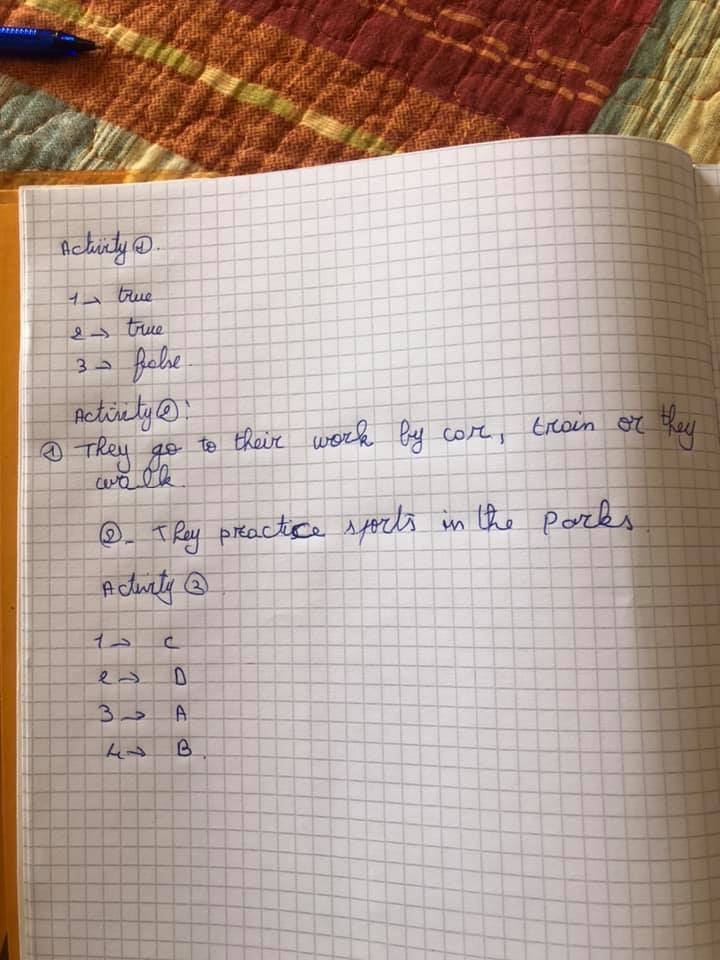 Activity ①.
1 → true
2 → true
3 → false.
Activity ②:
① They go to their work by car, train or they
walk.
②- They practice sports in the parks.
Activity ③
1 → C
2 → D
3 → A
4 → B.